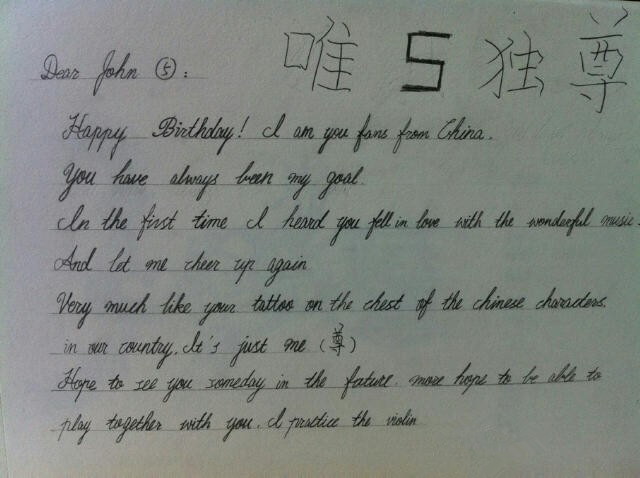 唯 5 独 尊
Dear John ⑤:
Happy Birthday! I am you fans from China.
You have always been my goal.
In the first time I heard you fell in love with the wonderful music.
And let me cheer up again
Very much like your tattoo on the chest of the chinese characters.
in our country. It's just me (尊)
Hope to see you someday in the feature. more hope to be able to
play together with you. I practice the violin